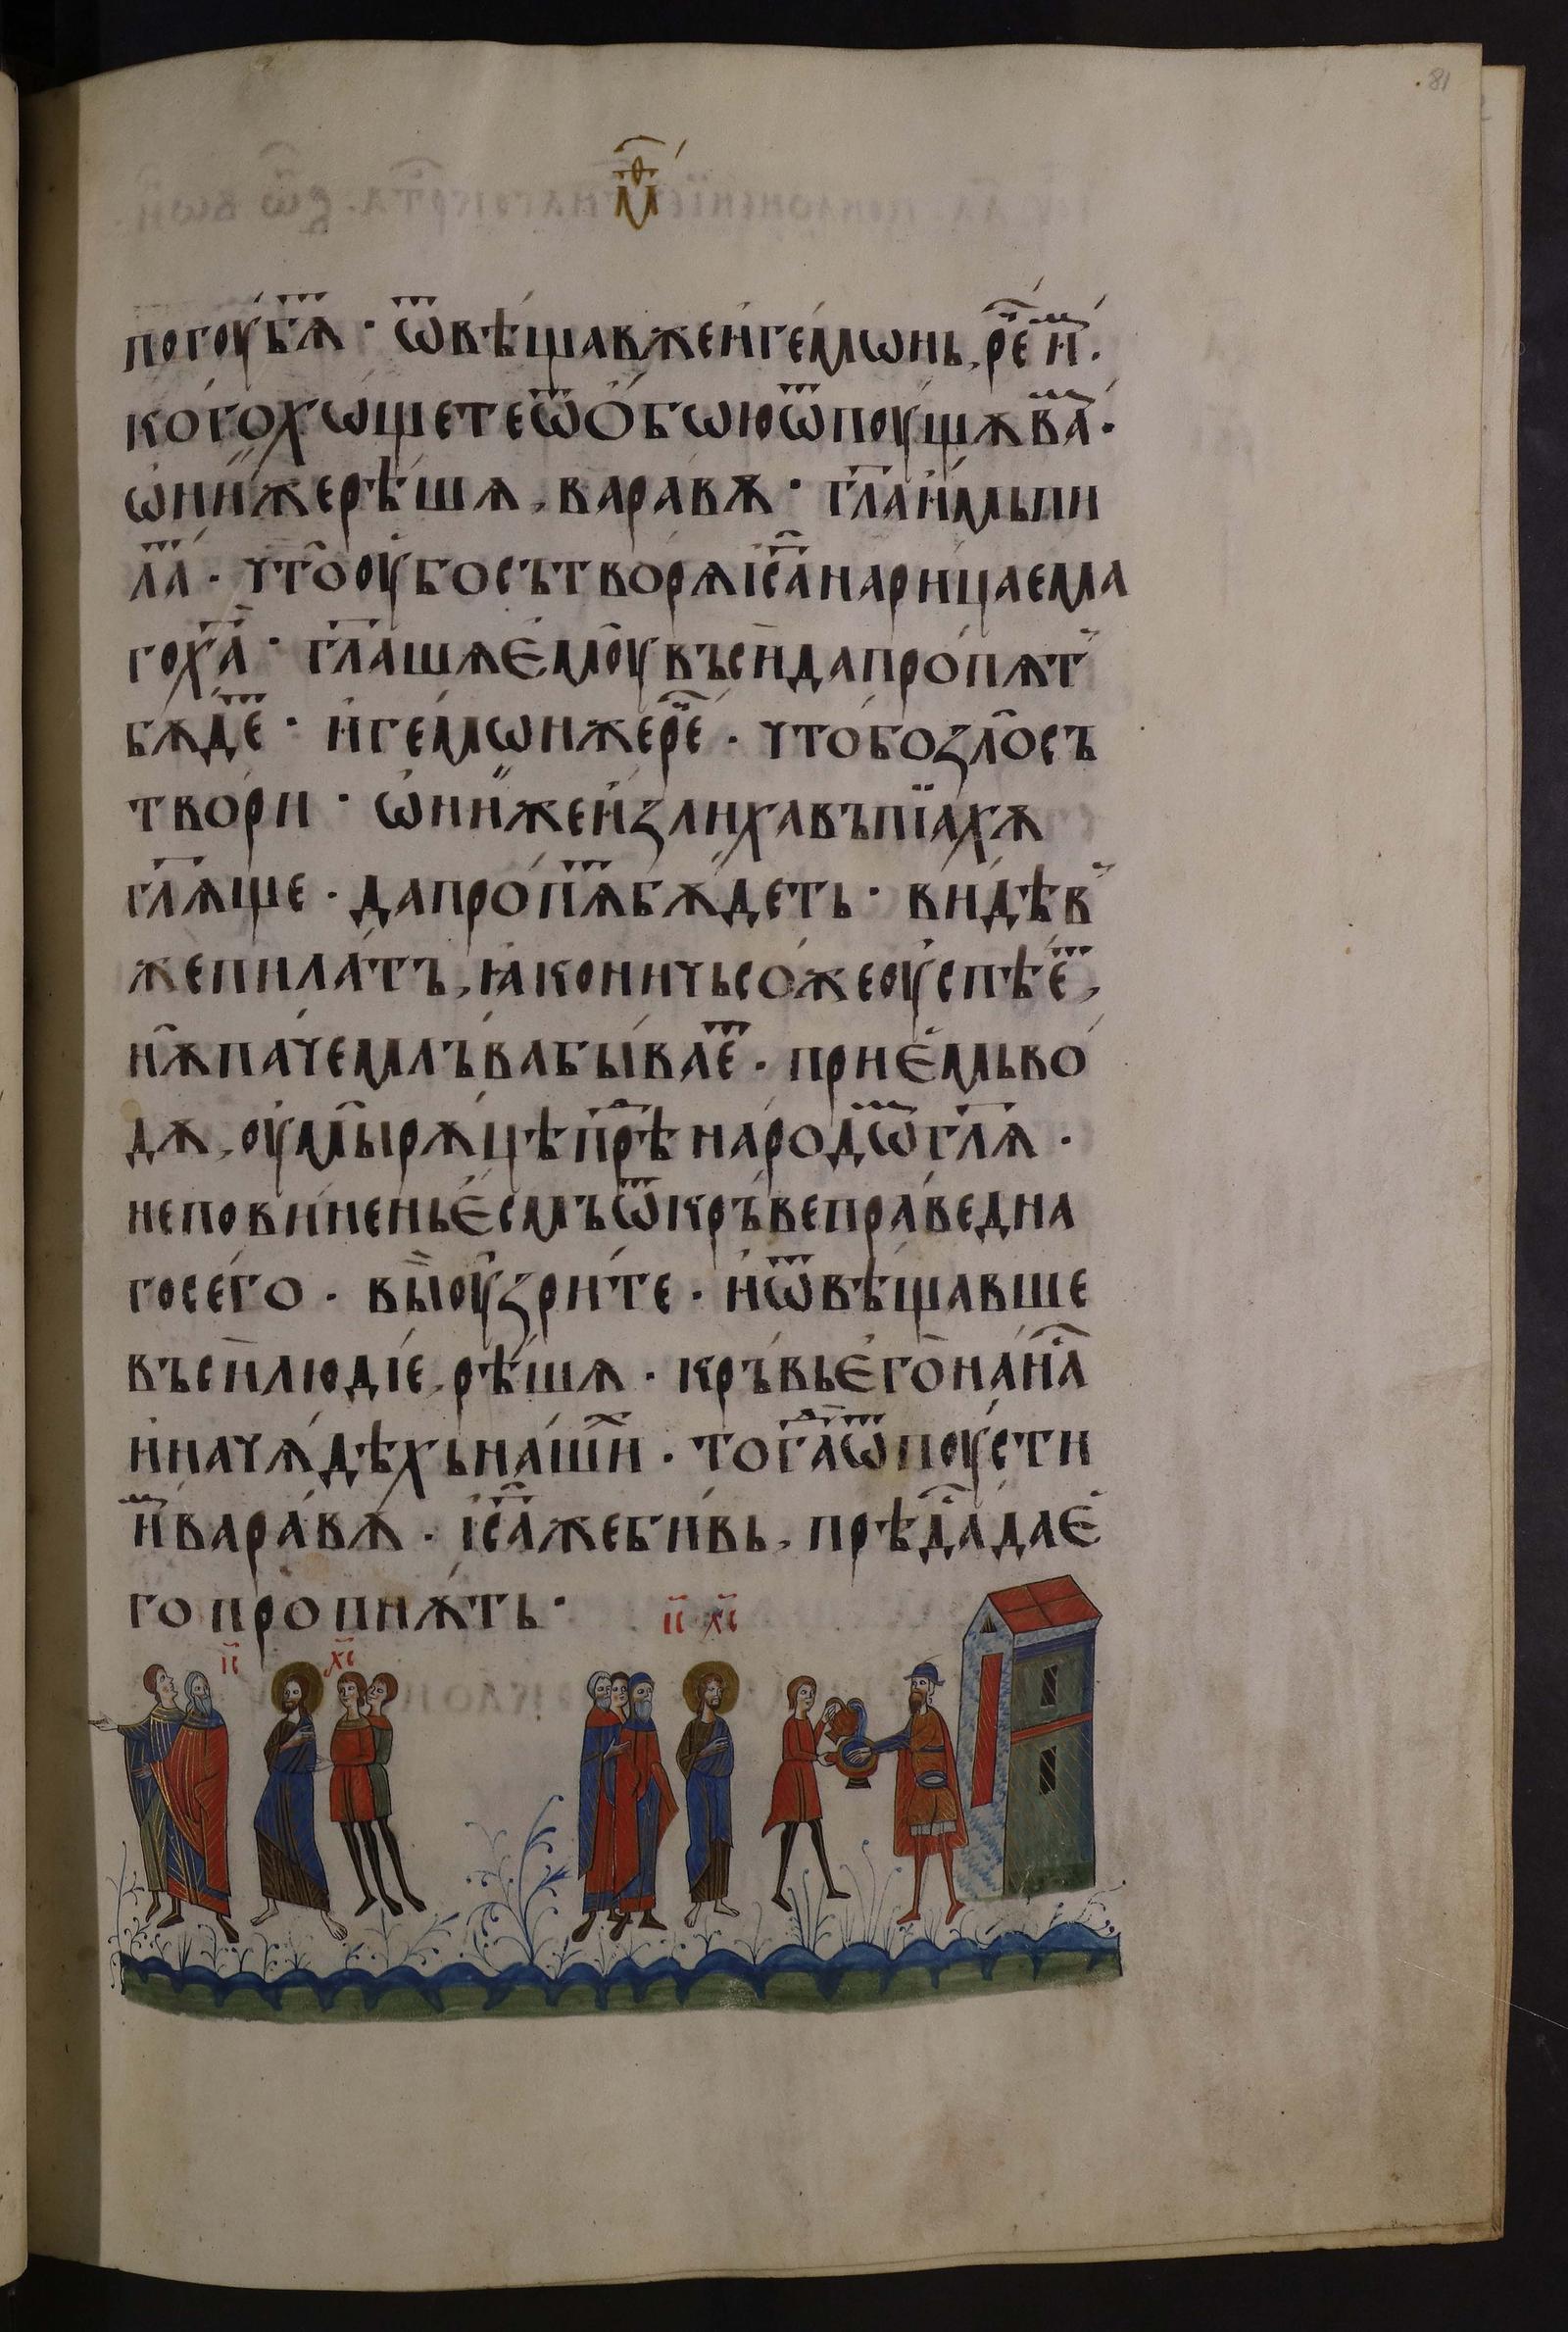 81
м҃ѳ
погоу́бѧ҃ · ѿвѣ́щав же и҆ге́мѡнь, ре҃ и҆҃.
ко́го хѡ́щете ѿ ѻ҆́бѡю ѿпоущѫ́ ва҃ ·
ѡ҆ни́ же рѣ́шѧ, вара́вѫ · гл҃а и҆́мь пи
ла҃ · что̑ оу҆бо сътво́рѧ і҆с҃а нарица́ема
го х҃а · гл҃ашѧ є҆моу̑ въсй да про́пѧт
бѫ́де҃ · и҆ге́мѡн же ре҃ · что́ бо зло̑ съ
тво́ри · ѡ҆ни́ же и҆з́лиха въпїа́хѫ
гл҃ѧще · да про́пѧ҃ бѫ́деть · ви́дѣв
же пила́тъ, ꙗ҆ко ничьсо́же оу҆спѣ́е҃,
нѫ̑ па́че млъ́ва бы́вае҃ · прие́мь во́
дѫ, оу҆мы̑ рѫ́цѣ прѣ҃ наро́дѡ҃ гл҃ѧ ·
непови́нень є҆́смъ ѿ кръ́ве пра́ведна
го сего́ · вы̀ оу҆зри́те · и҆ ѿвѣ́щавше
въсй лю́діе, рѣ́шѧ · кръ́вь є҆го̀ на́ на҃
и҆ на чѧ́дѣхь на́ши҃ · тог҃а ѿпоу́сти
и҆҃ вара́вѫ · і҆с҃а же би́вь, прѣда҃ да є҆
го пропнѫ́ть ·
і҃с х҃с
і҃с х҃с